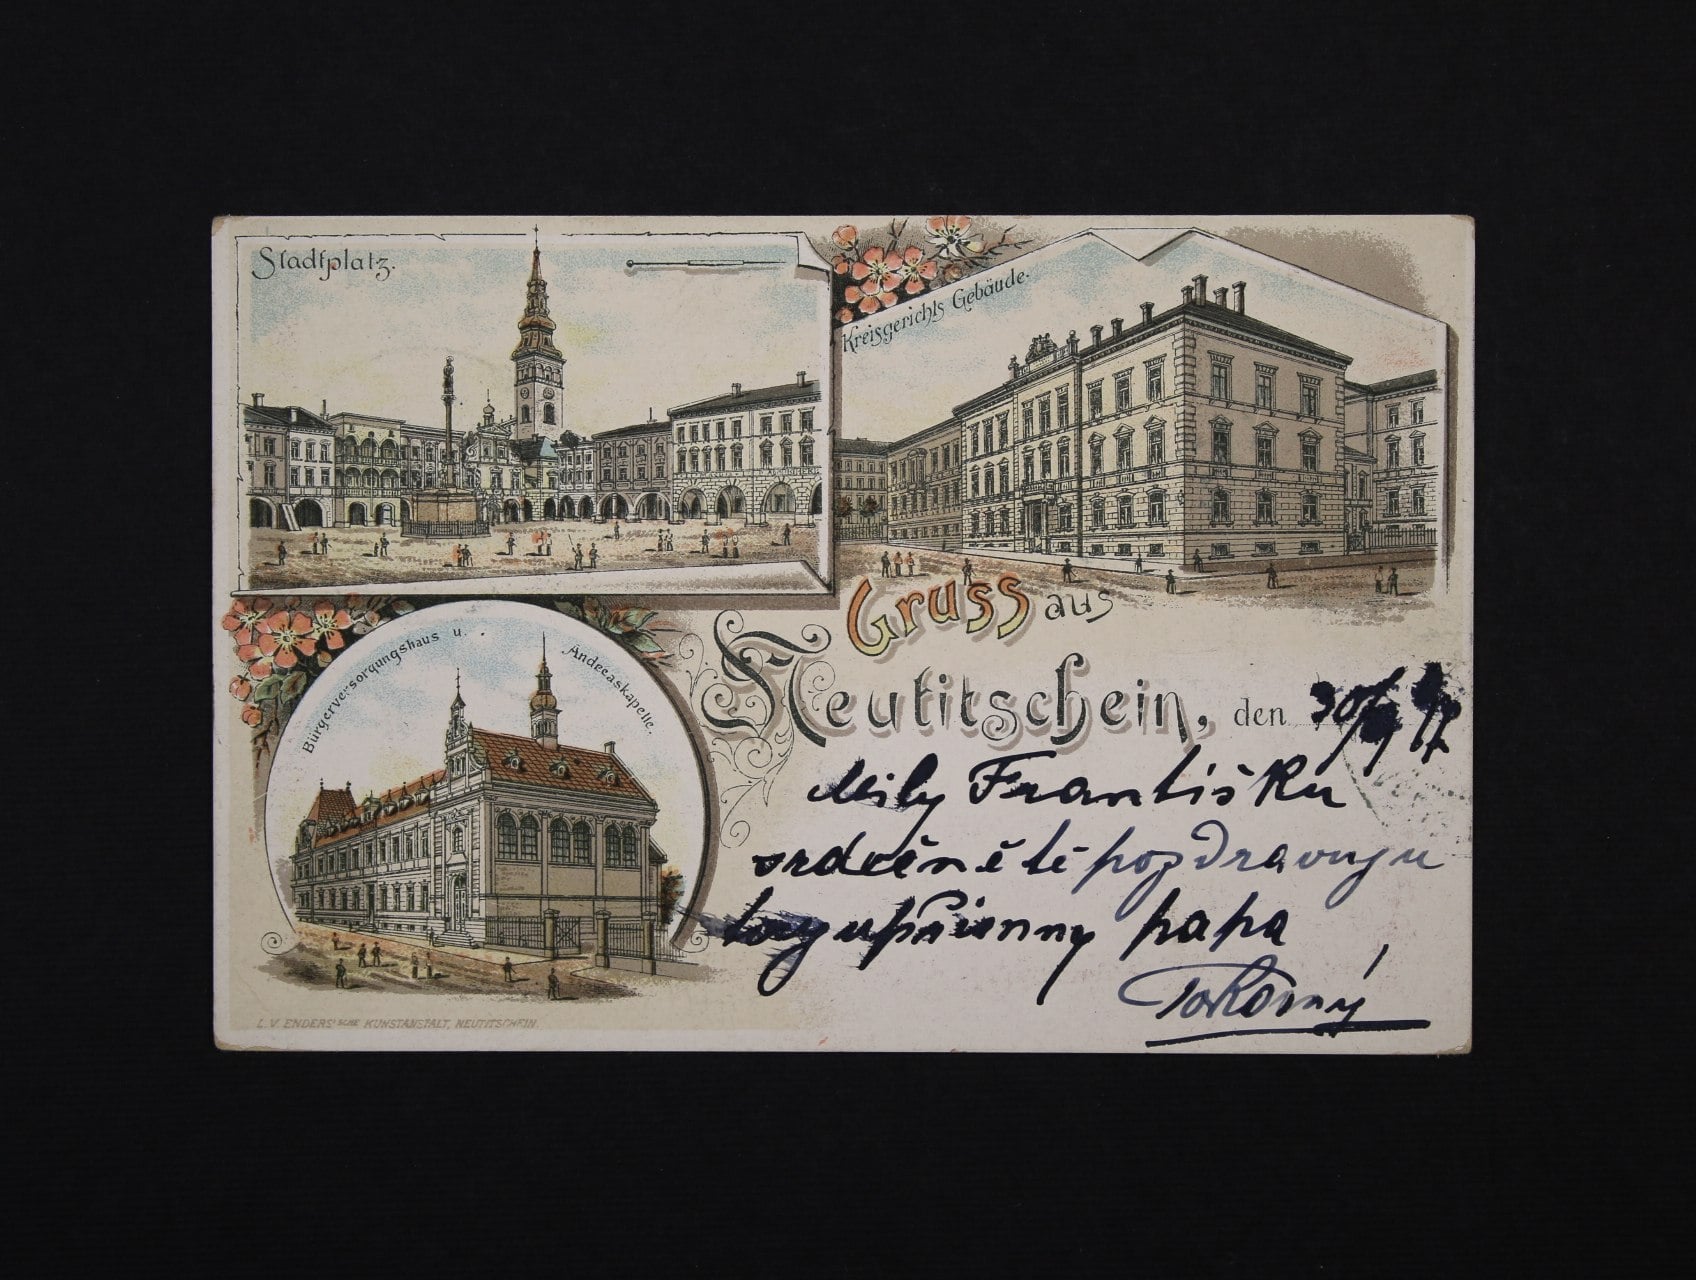 Stadtplatz.
Kreisgerichts Gebäude.
Bürgerversorgungshaus u. Andreaskapelle.
Gruss aus
Neutitschein, den 30/
Milý Františku
srdečně tě pozdravuju
tvůj upřímny papa
Pokorný
L. V. ENDERS'SCHE KUNSTANSTALT, NEUTITSCHEIN.